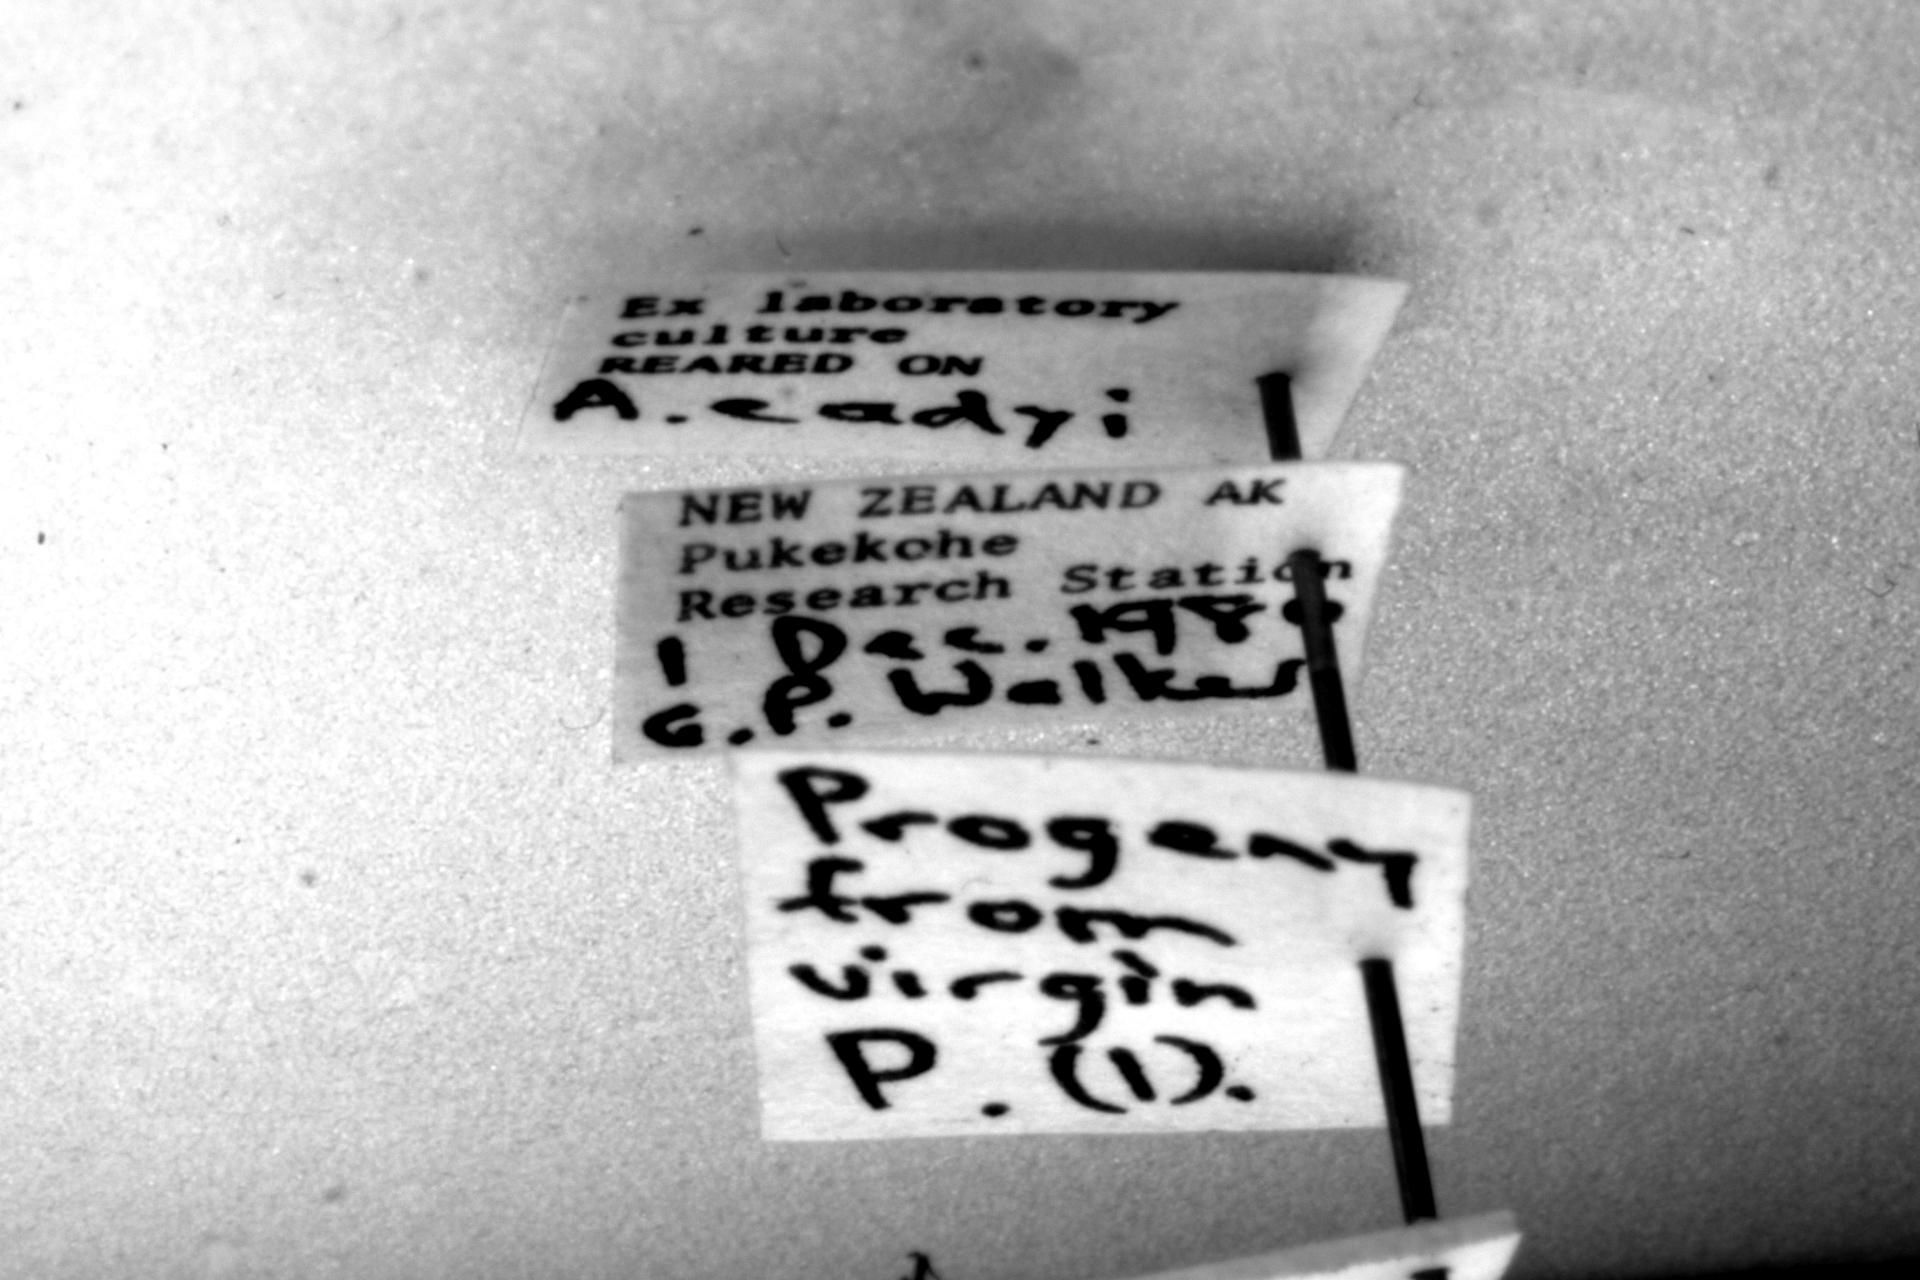 Ex laboratory
culture
REARED ON
A. eadyi
NEW ZEALAND AK
Pukekohe
Research Station
1 Dec. 1980
G.P. Walker
Progeny
from
virgin
P. (1).